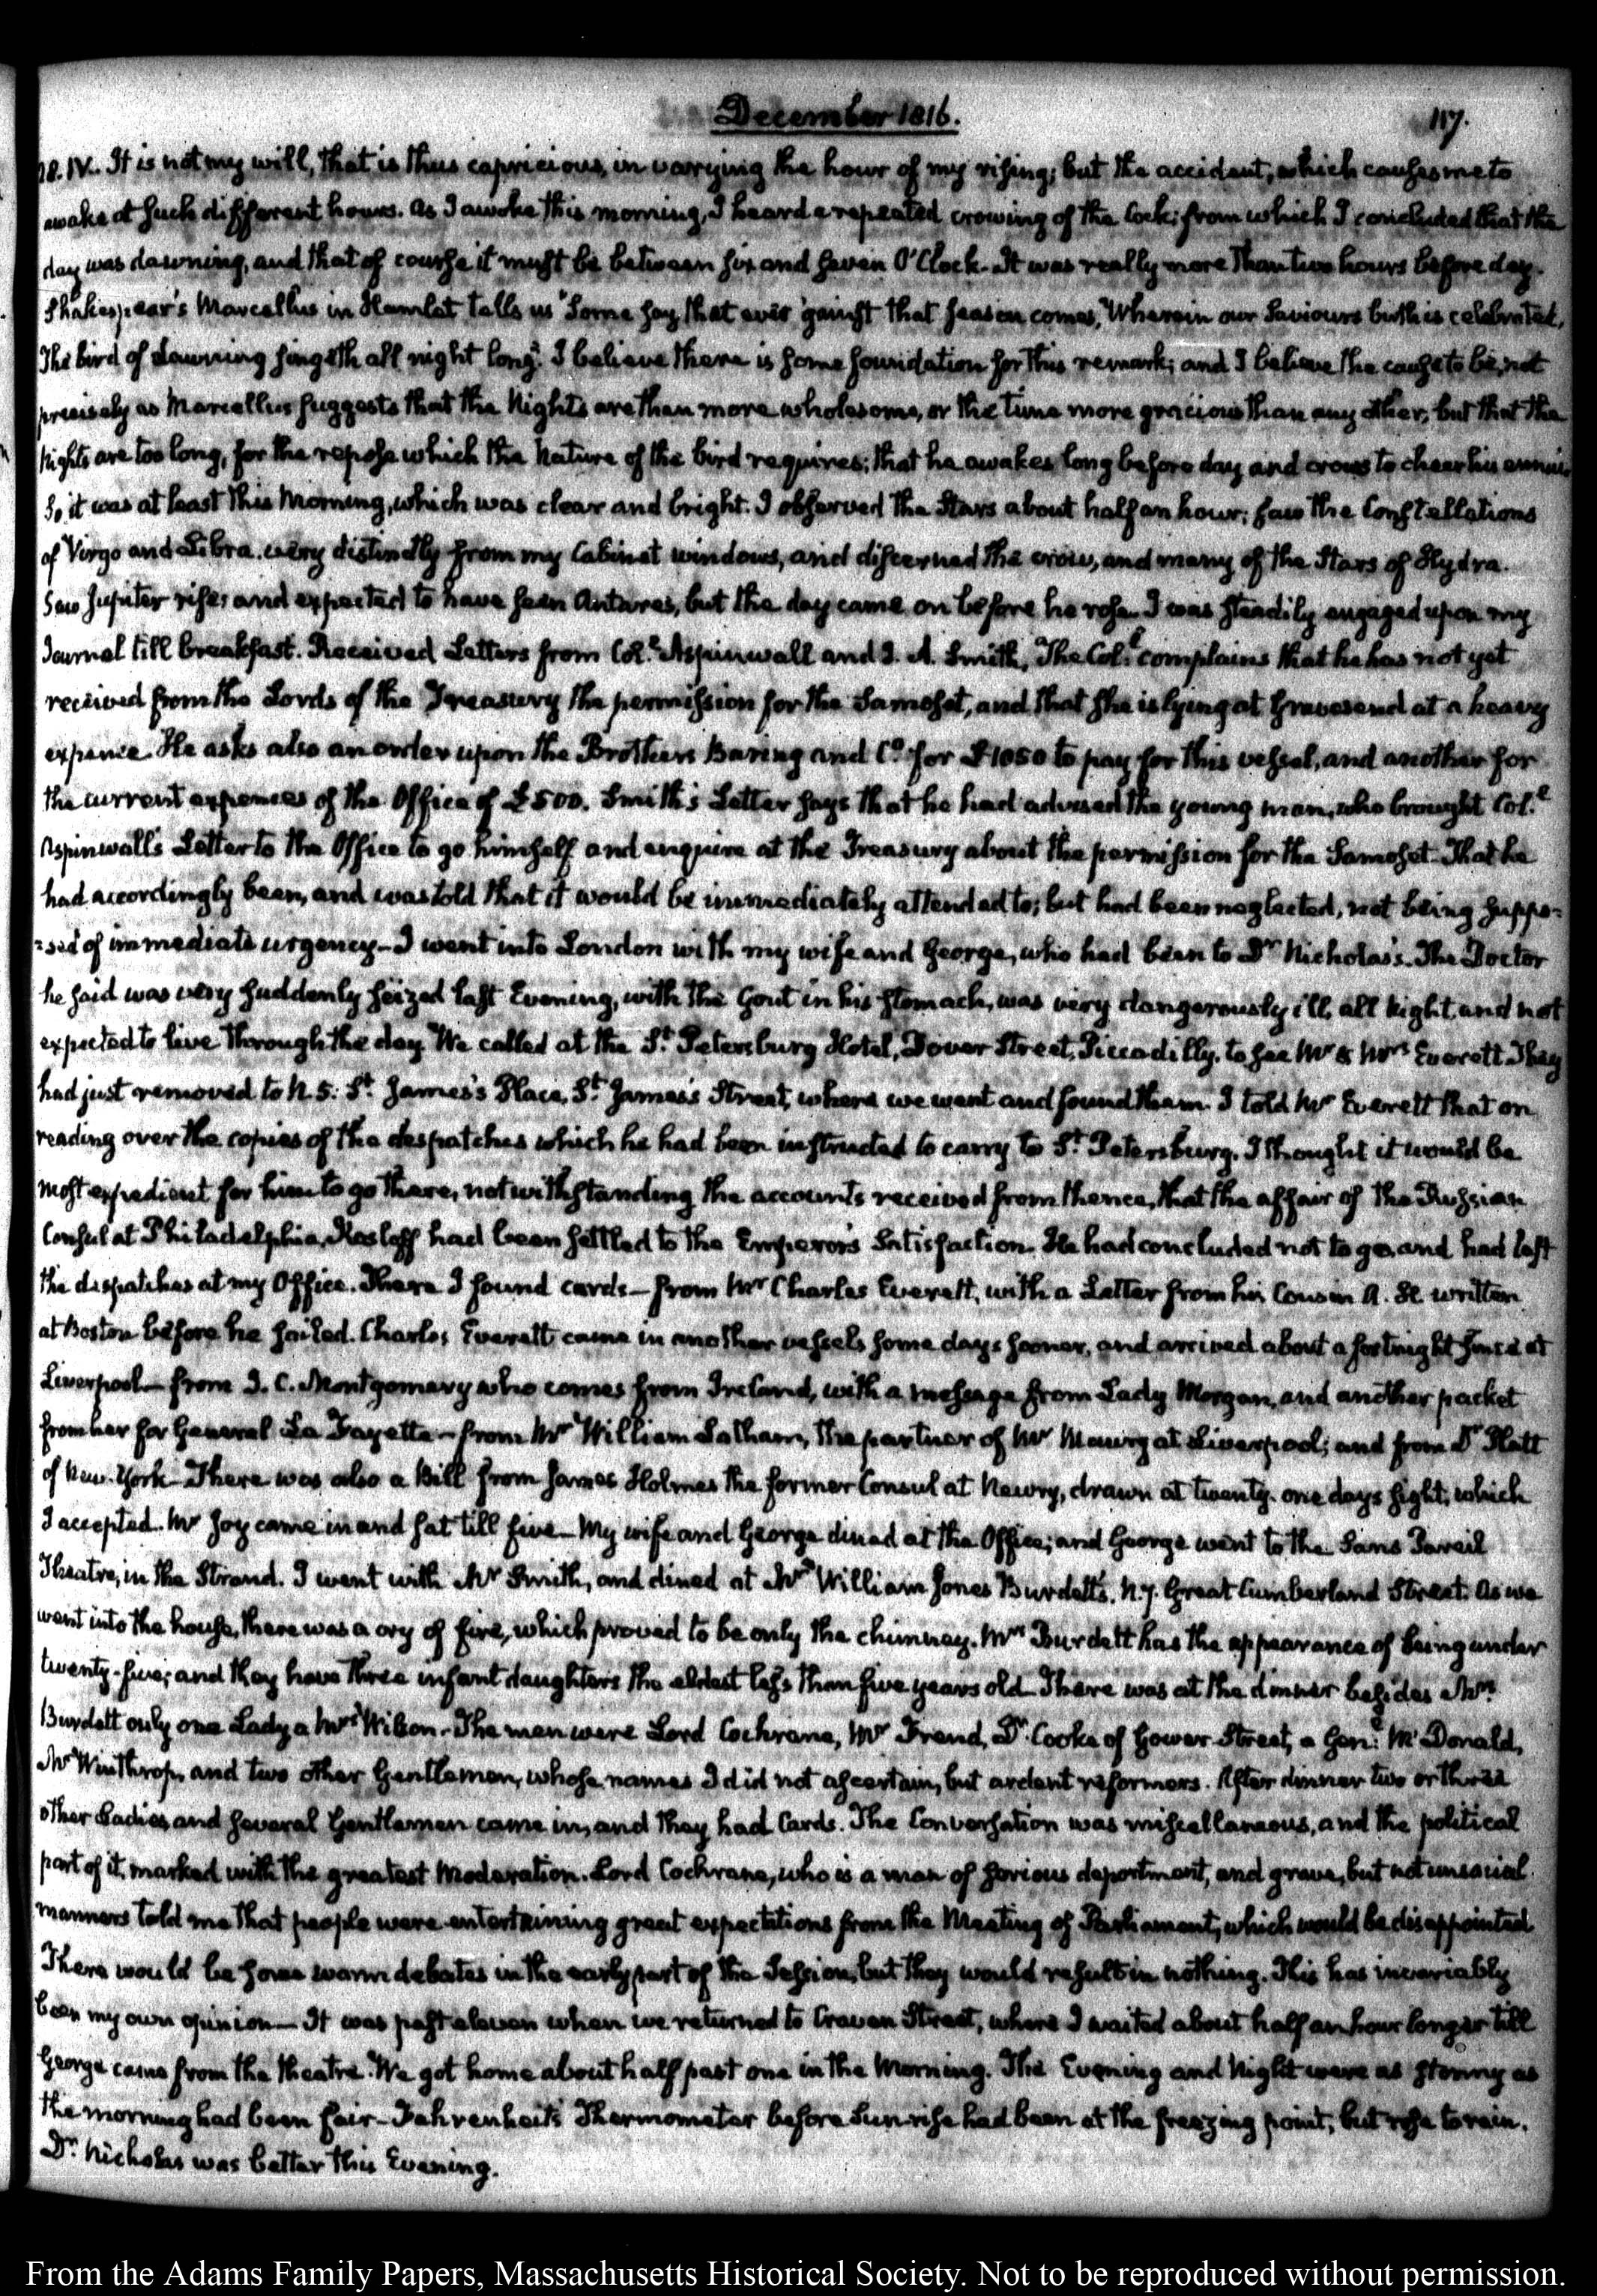 December 1816.
117.
18. IV.. It is not my will, that is thus capricious, in varying the hour of my rising; but the accident, which causes me to
awake at such different hours. As I awoke this morning, I heard a repeated crowing of the Cock; from which I concluded that the
day was dawning, and that of course it must be between six and seven O'Clock. It was really more than two hours before day.
Shakespear's Marcellus in Hamlet tells us "Some say, that ever 'gainst that season comes, "Wherein our Saviours birth is celebrated,
The bird of dawning singeth all night long." I believe there is some foundation for this remark; and I believe the cause to be, not
precisely as Marcellus suggests that the Nights are then more wholesome, or the time more gracious than any other; but that the
Nights are too long, for the repose which the Nature of the bird requires; that he awakes long before day and crows to cheer his ennui.
So it was at least this Morning, which was clear and bright. I observed the Stars about half an hour; saw the Constellations
of Virgo and Libra very distinctly from my Cabinet windows, and discerned the crow, and many of the Stars of Hydra.
Saw Jupiter rise; and expected to have seen Antares, but the day came on before he rose. I was steadily engaged upon my
Journal till breakfast. Received Letters from Col.l Aspinwall and J. A. Smith, The Col.l complains that he has not yet
received from the Lords of the Treasury the permission for the Samoset, and that she is lying at Gravesend at a heavy
expence. He asks also an order upon the Brothers Baring and Co. for £1050 to pay for this vessel, and another for
the current expences of the Office of £500. Smith's Letter says that he had advised the young man, who brought Col.l
Aspinwall's Letter to the Office to go himself and enquire at the Treasury about the permission for the Samoset. That he
had accordingly been, and was told that it would be immediately attended to; but had been neglected, not being suppo=
=sed of immediate urgency. I went into London with my wife and George, who had been to Dr Nicholas's. The Doctor
he said was very suddenly seized last Evening, with the Gout in his stomach, was very dangerously ill, all Night, and not
expected to live through the day. We called at the St. Petersburg Hotel, Dover Street, Piccadilly, to see Mr & Mrs Everett. They
had just removed to N. 5: St. James's Place, St. James's Street, where we went and found them. I told Mr Everett that on
reading over the copies of the despatches which he had been instructed to carry to St. Petersburg, I thought it would be
most expedient for him to go there, notwithstanding the accounts received from thence, that the affair of the Russian
Consul at Philadelphia, Kosloff had been settled to the Emperor's Satisfaction. He had concluded not to go, and had left
the despatches at my Office. There I found cards— from Mr Charles Everett, with a Letter from his Cousin A. H. written
at Boston before he sailed. Charles Everett came in another vessels some days sooner, and arrived about a fortnight since at
Liverpool— from J. C. Montgomery who comes from Ireland, with a message from Lady Morgan, and another packet
from her for General La Fayette— from Mr William Latham, the partner of Mr Maury at Liverpool; and from Dr Platt
of New-York. There was also a Bill from James Holmes the former Consul at Newry, drawn at twenty-one days sight, which
I accepted. Mr Joy came in and sat till five— My wife and George dined at the Office; and George went to the Sans Pareil
Theatre, in the Strand. I went with Mr Smith, and dined at Mr William Jones Burdett's. N. 7. Great Cumberland Street. As we
went into the house, there was a cry of fire, which proved to be only the chimney. Mrs Burdett has the appearance of being under
twenty-five; and they have three infant daughters the eldest less than five years old. There was at the dinner besides Mrs
Burdett only one Lady a Mrs Wilson. The men were Lord Cochrane, Mr Frend, Dr. Cooke of Gower Street, a Gen.l McDonald,
Mr Winthrop, and two other Gentlemen, whose names I did not ascertain, but ardent reformers. After dinner two or three
other Ladies, and several Gentlemen came in, and they had Cards. The Conversation was miscellaneous, and the political
part of it, marked with the greatest Moderation. Lord Cochrane, who is a man of serious deportment, and grave, but not unsocial
manners told me that people were entertaining great expectations from the Meeting of Parliament, which would be disappointed
There would be some warm debates in the early part of the Session, but they would result in nothing. This has invariably
been my own opinion— It was past eleven when we returned to Craven Street, where I waited about half an hour longer till
George came from the theatre. We got home about half past one in the Morning. The Evening and Night were as stormy as
the morning had been fair— Fahrenheit's Thermometer before Sun-rise had been at the freezing point; but rose to rain.
Dr. Nicholas was better this Evening.
From the Adams Family Papers, Massachusetts Historical Society. Not to be reproduced without permission.